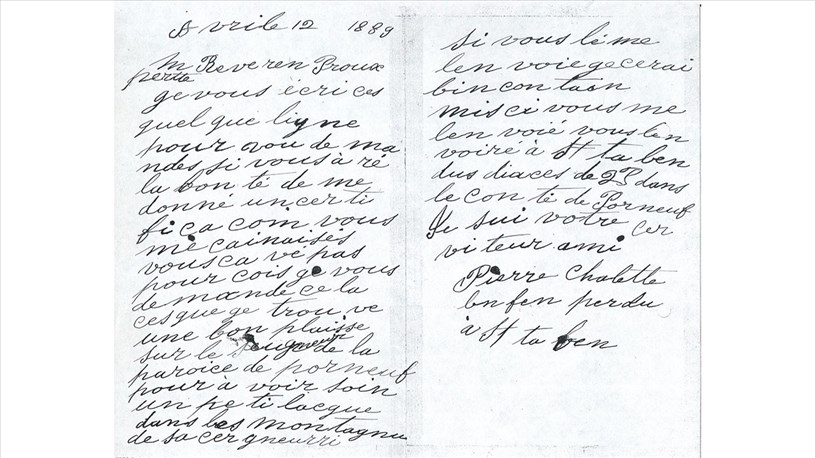 Avrile 12 1889
m Reveren Proux
perre
ge vous ècri ces
quel que ligne
pour vou de ma
ndes si vous à ré
la bon té de me
donné un cer ti
fi ca com vous
me cainaisés
vous ca vé pas
pour cois ge vous
de mande ce la
ces que ge trou ve
une bon plaisse
sur le de la
paroice de porneuf
pour à voir soin
un pe ti lacque
dans les montagnu
de sa cer gneurri
si vous lé me
len voie ge cerai
bin con tain
mis ci vous me
len voié vous len
voiré à St ta ben
dus diaces de 2B dans
le con té de Porneuf
Je sui votre cer
viteur ami
Pierre Cholette
en fen perdu
à St ta ben